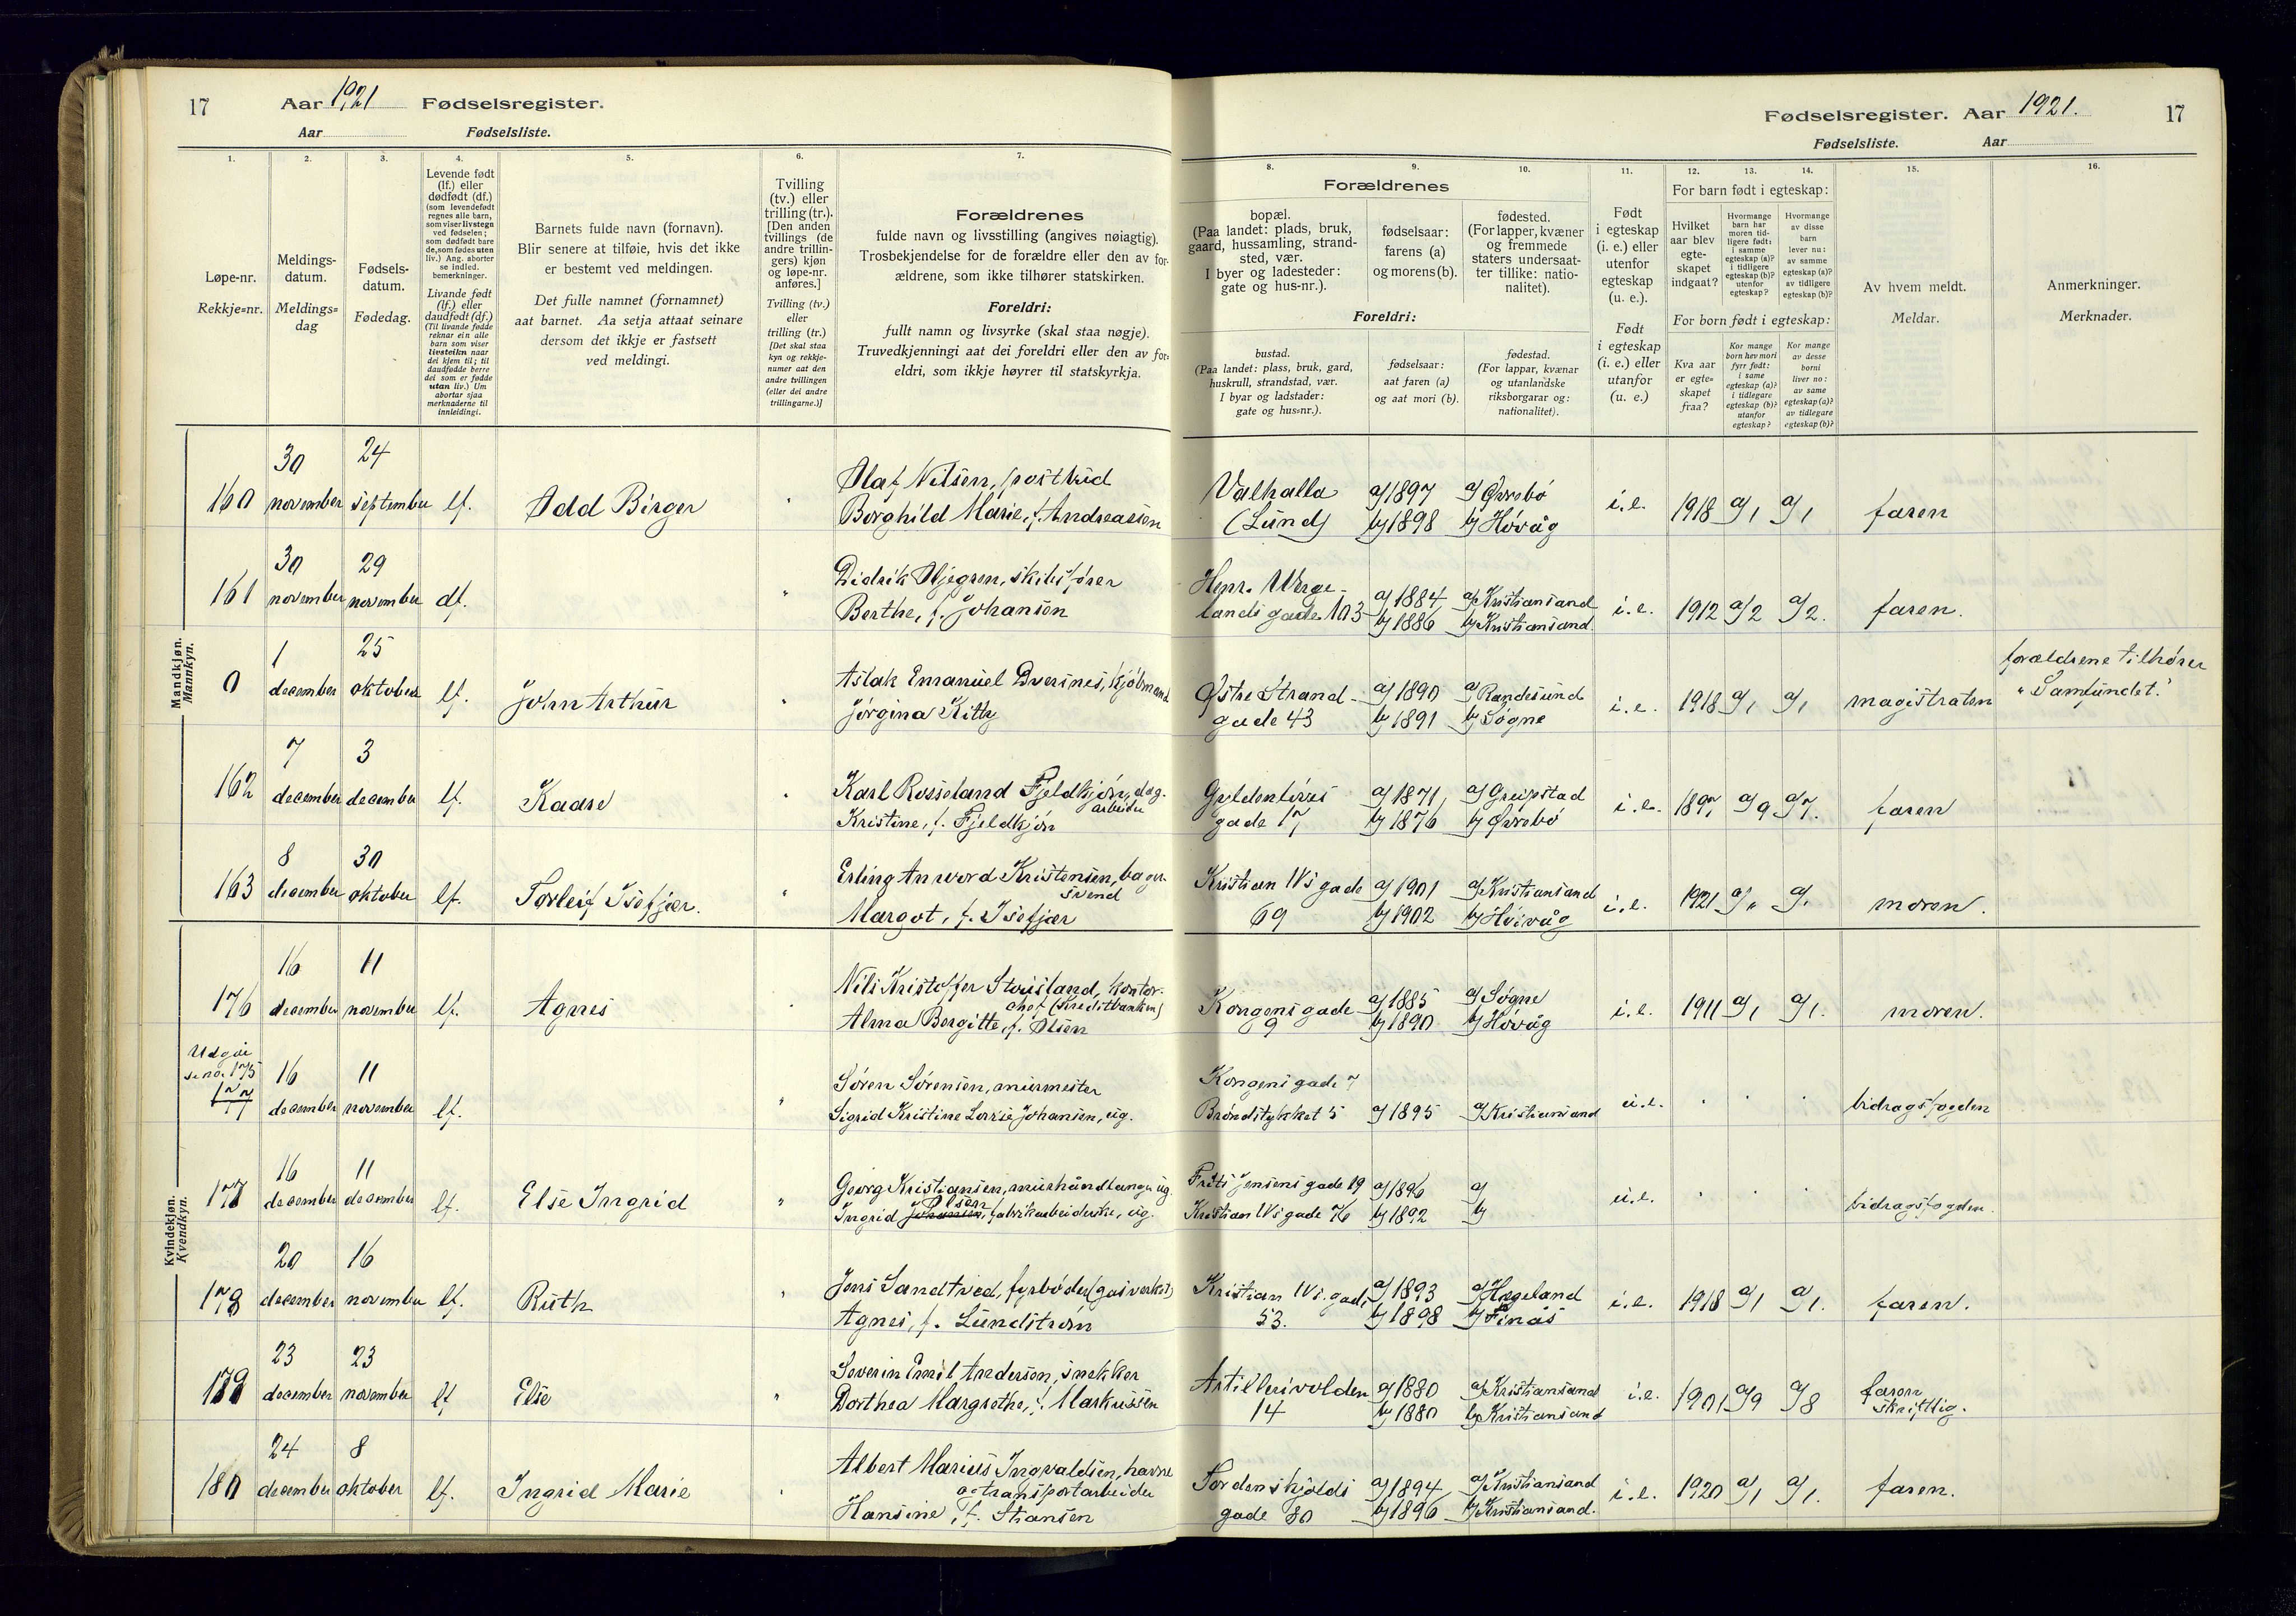 17 Aar 1921 Fødselsregister.
Aar Fødselsliste.
Fødselsregister. Aar 1921. 17
Fødselsliste. Aar
1. 2. 3. 4. 5. 6. 7.
Løpe-nr.
Rekkje=nr.
Meldings-
datum.
Meldings=
dag
Fødsels-
datum.
Fødedag.
Levende født
(lf.) eller
dødfødt (df.)
(som levendefødt
regnes alle barn,
som viser livstegn
ved fødselen;
som dødfødt bare
de, som fødes uten
liv.) Ang. aborter
se indled.
bemerkninger.
Livande født
(lf.) eller
daudfødt (df.)
(Til livande fødde
reknar ein alle
barn som viser
livsteikn naar
dei kjem til; til
daudfødde berre
dei som er fødde
utan liv.) Um
abortar sjaa
merknaderne til
innleidingi.
Barnets fulde navn (fornavn).
Blir senere at tilføie, hvis det ikke
er bestemt ved meldingen.
Det fulle namnet (fornamnet)
aat barnet. Aa setja attaat seinare
dersom det ikkje er fastsett
ved meldingi.
Tvilling
(tv.) eller
trilling (tr.).
[Den anden
tvillings (de
andre trillin-
gers) kjøn
og løpe-nr.
anføres.]
Tvilling (tv.)
eller
trilling (tr.)
[Det skal staa
kyn og rekkje-
numer aat den
andre tvillingen
(eller dei andre
trillingarne.)]
Forældrenes
fulde navn og livsstilling (angives nøiagtig).
Trosbekjendelse for de forældre eller den av for-
ældrene, som ikke tilhører statskirken.
Foreldri:
fullt namn og livsyrke (skal staa nøgje).
Truvedkjenningi aat dei foreldri eller den av for=
eldri, som ikkje høyrer til statskyrkja.
8. 9. 10. 11. 12. 13. 14. 15. 16.
Forældrenes
bopæl.
(Paa landet: plads, bruk,
gaard, hussamling, strand-
sted, vær.
I byer og ladesteder:
gate og hus-nr.).
fødselsaar:
farens (a)
og morens (b).
fødested.
(For lapper, kvæner
og fremmede
staters undersaat-
ter tillike: natio-
nalitet).
Foreldri:
bustad.
(Paa landet: plass, bruk, gard,
huskrull, strandstad, vær.
I byar og ladstader:
gate og hus=nr.).
fødselsaar:
aat faren (a)
og aat mori (b).
fødestad.
(For lappar, kvænar
og utanlandske
riksborgarar og:
nationalitet).
Født
i egteskap
(i. e.) eller
utenfor
egteskap
(u. e.).
Født
i egteskap
(i. e.) eller
utanfor
(u. e.)
For barn født i egteskap:
Hvilket
aar blev
egte-
skapet
indgaat?
Hvormange
barn har
moren tid-
ligere født:
i samme
egteskap (a)?
i tidligere
egteskap (b)?
utenfor
egteskap?
Hvormange
av disse
barn
lever nu:
av samme
egteskap (a)?
av tidligere
egteskap (b)?
For born født i egteskap:
Kva aar
er egte=
skapet
fraa?
Kor mange
born hev mori
fyrr født:
i same
egteskap (a)?
i tidlegare
egteskap (b)?
utanfor
egteskap?
Kor mange
av desse
borni
liver no:
av same
egteskap (a)?
av tidlegare
egteskap (b)?
Av hvem meldt.
Meldar.
Anmerkninger.
Merknader.
Mandkjøn.
Mannkyn.
160 30 november 24 september lf. Odd Birger " Olaf Nilsen, postbud
Borghild Marie, f. Andreassen
Valhalla (Lund) a) 1897 b) 1898 a) Øvrebö b) Hövåg i. e. 1918 a) 1 a) 1 faren
161 30 november 29 november df. " Didrik Njegren, skibsfører
Berthe, f. Johansen
Henr. Wergelands gade 103 a) 1884 b) 1886 a) Kristiansand b) Kristiansand. i. e. 1912 a) 2 a) 2. faren.
0 1 december 25 oktober lf. John Arthur " Aslak Emanuel Dversnes, kjøbmand
Jørgina Kitty
Østre Strandgade 43 a) 1890 b) 1891 a) Randesund b) Søgne i. e. 1918 a) 1 a) 1 magistraten forældrene tilhører "Samfundet."
162 7 december 3 december lf. Kaare " Karl Rosseland Fjeldkjón, dagarbeider
Kristine, f. Fjeldkjón
Gyldenløves gade 17 a) 1871 b) 1876 a) Greipstad b) Øvrebó i. e. 1897 a) 9 a) 7. faren
163 8 december 30 oktober lf. Torleif Isefjær. " Erling Anvord Kristensen, bagersvend
Margot, f. Isefjær
Kristian IVs gade 69 a) 1901 b) 1902 a) Kristiansand b) Höivåg i. e. 1921 a) " a) " moren.
Kvindekjøn.
Kvendkyn.
176 16 december 11 november lf. Agnes " Nils Kristoffer Stousland, kontorchef (Kreditbanken)
Alma Bergitte, f. Olsen
Kongens gade 9 a) 1885 b) 1890 a) Søgne b) Hövåg i. e. 1911 a) 1 a) 1. moren.
Udgår
se no. 175
177 16 december 11 november lf. " Søren Sørensen, murmester
Sigrid Kristine Lovise Johansen, ug.
Kongens gade 7
Brøndstykket 5 a) 1895 a) Kristiansand u. e. " " " bidragsfogden
177 16 december 11 december lf. Else Ingrid " Georg Kristiansen, murhåndlanger ug.
Ingrid Johansen Olsen, fabrikarbeiderske, ug.
Frits Jensens gade 19
Kristian IVs gade 76 a) 1896 b) 1892 a) b) u. e. " " " bidragsfogden.
178 20 december 16 november lf. Ruth " Jens Sandtved, fyrbøder (gasverket)
Agnes, f. Lundstrøm
Kristian IVs. gade 53. a) 1893 b) 1898 a) Hægeland b) Finås i. e. 1918 a) 1 a) 1. faren.
179 23 december 23 november lf Else " Severin Emil Andersen, snekker
Dorthea Margrethe, f. Markussen
Artillerivolden 14 a) 1880 b) 1880 a) Kristiansand b) Kristiansand i. e. 1901 a) 9 a) 8 faren skriftlig.
180 24 december 8 oktober lf. Ingrid Marie " Albert Marius Ingvaldsen, havne og transportarbeider
Hansine, f. Stiansen
Tordenskjolds gade 80 a) 1894 b) 1896 a) Kristiansand b) Kristiansand. i. e. 1920 a) 1 a) 1. faren.